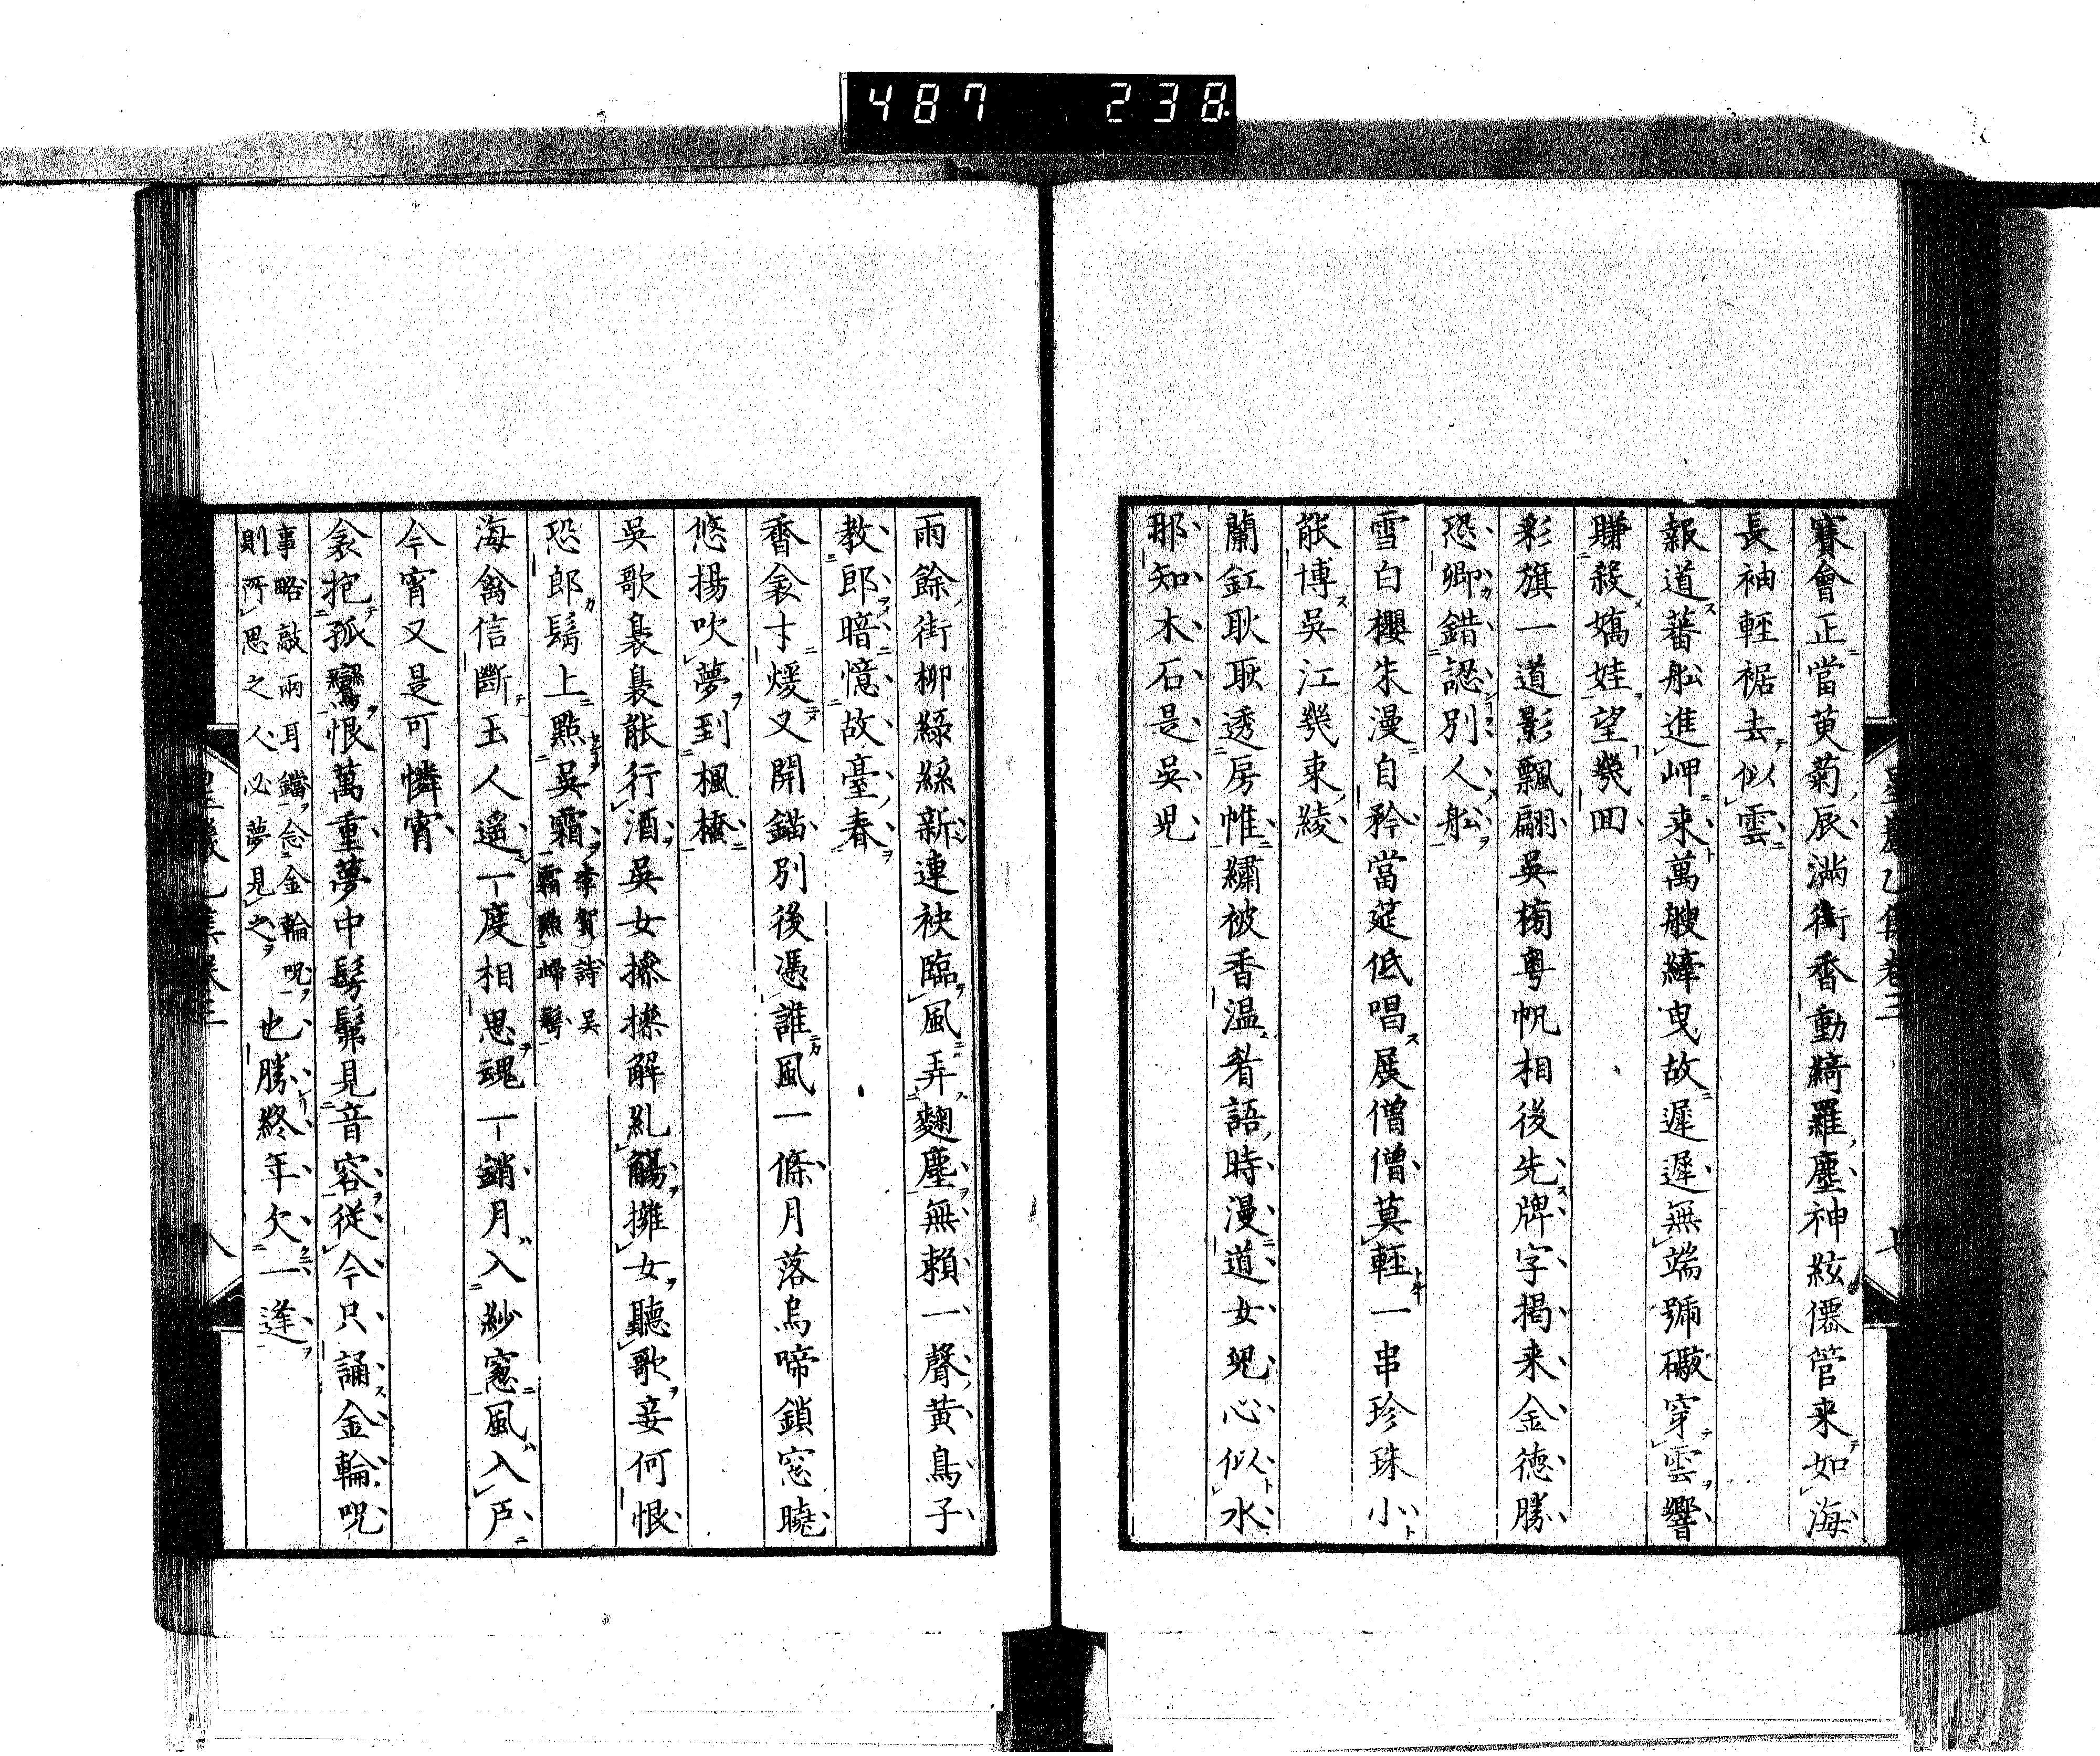 487 238
賽會正當萸菊辰滿街香動綺羅塵神絃僊管来如海
長袖輕裾去似雲
報道蕃舩進岬来萬艘縴曳故遲遲無端號礟穿雲響
賺殺嬌娃望幾回
彩旗一道影飄翩吳檣粤帆相後先牌字掲来金德勝
恐卿錯認別人舩
雪白櫻朱漫自矜當筵低唱展僧僧莫輕一串珍珠小
能博吳江幾束綾
蘭釭耿耿透房帷繡被香温着語時漫道女兒心似水
那知木石是吳兒
雨餘街柳綠絲新連袂臨風弄麹塵無賴一聲黄鳥子
教郎暗憶故臺春
香衾寸煖又開錨別後憑誰風一條月落烏啼鎖窓曉
悠揚吹夢到楓橋
吳歌裊裊能行酒吳女摻摻解糺觴擁女聽歌妾何恨
恐郎鬢上點吳霜李賀詩吳霜點歸鬢
海禽信斷玉人遥一度相思魂一銷月入紗窓風入戸
今宵又是可憐宵
衾抱孤鸞恨萬重夢中髣髴見音容從今只誦金輪呪
事略敲兩耳鐺念金輪呪則所思之人必夢見之也勝終年欠一逢
八